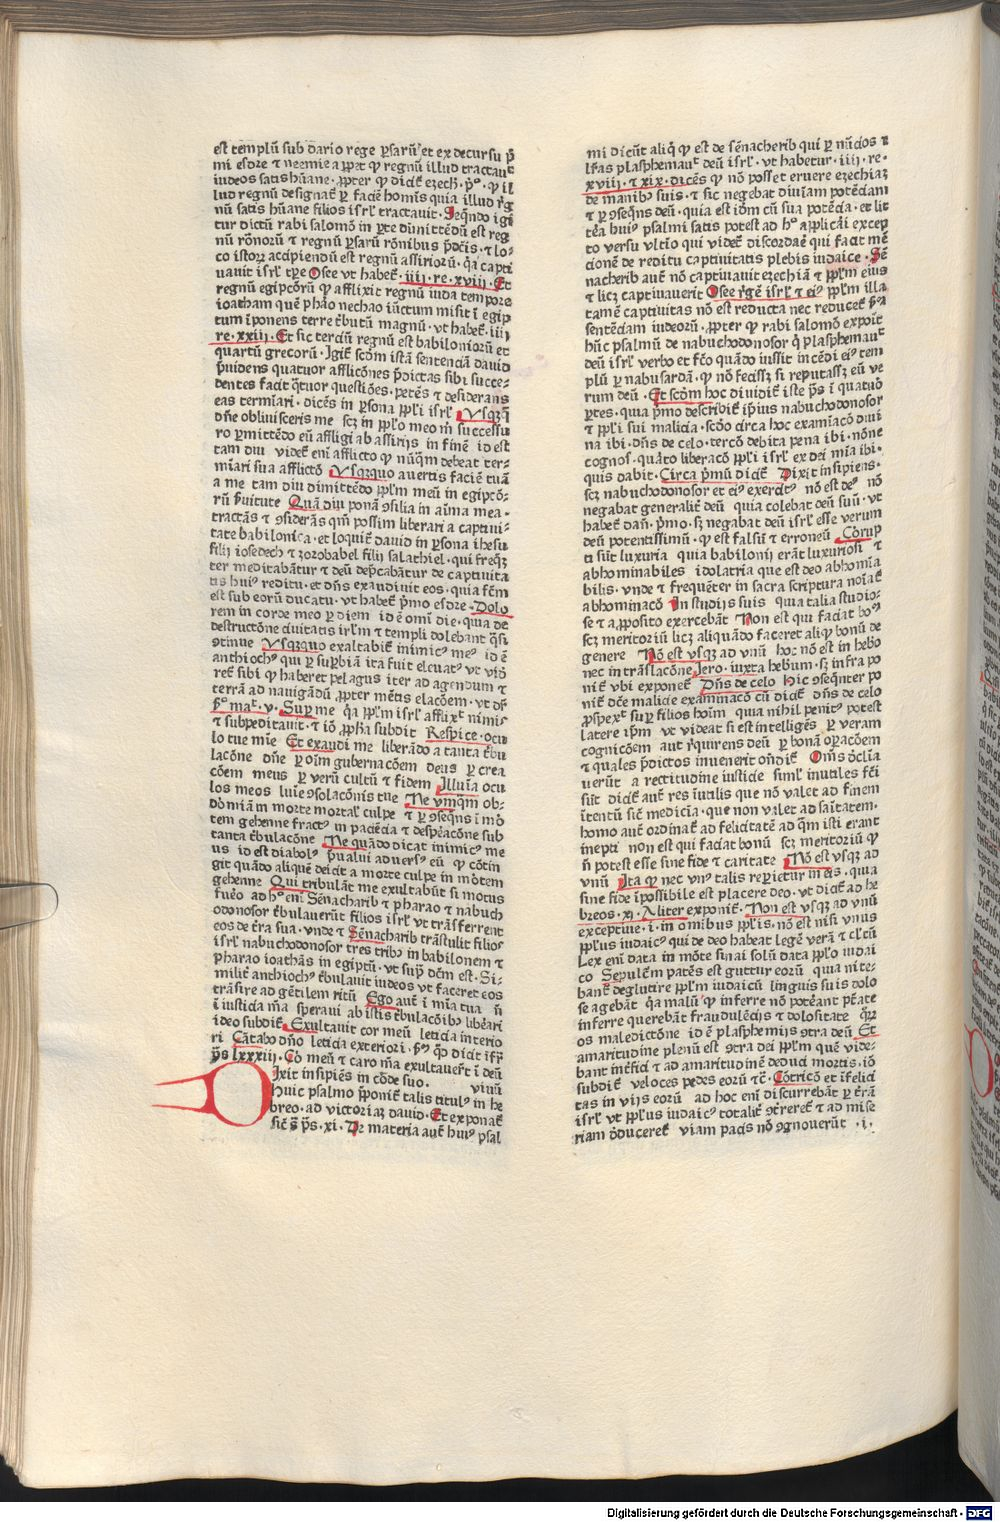 est templū sub dario rege ꝑsaꝝ et ex decursu ṗ
mi esdre ⁊ neemie aꝑꝫ ꝙ regnū illud tractauit
iudeos satis hūane · ꝓpter ꝙ dicit̄ ezech · p̄º · ꝙ il
lud regnū designat̄ ꝑ faciē homīs quia illud r̄g
nū satis hūane filios isrl̄ tractauit · Seqn̄do igi
tur dictū rabi salomō in ꝑte dimittēdū est reg
nū rōnorū ⁊ regnū ꝑsarū rōnibus p̄dc̄is · ⁊ lo-
co istorꝝ accipiendū est regnū assiriorū · qa capti
uauit isrl̄ tꝑe Osee vt habet̄ · iiij · re · xviij · Et
regnū egipcōrū ꝙ afflixit regnū iuda tempore
ioatham quē phāo nechao iūctum misit ī egip
tum īponens terre t̄butū magnū · vt habet̄ · iiij
re · xxiij · Et sic terciū regnū est babiloniorū et
quartū grecorū · Igit̄ scd̄m istā sentenciā dauid
p̄uidens quatuor afflicōnes p̄dictas sibi succe-
dentes facit qtuor questiōes · petēs ⁊ desiderans
eas termīari · dicēs in ꝑsona ppl̄i isrl̄ Vsqꝫq̄
dn̄e obliuisceris me scꝫ in ppl̄o meo in successu
ro ꝑmittēdo eū affligi ab assirijs in finē id est
tam diu videt̄ eni afflicto ꝙ nūqm̄ debeat ter-
mīari sua afflictō Vsqꝫquo auertis faciē tuā
a me tam diu dimittēdo ppl̄m meū in egipcō-
rū ẜuitute Quādiu ponā ꝯsilia in aīma mea ·
tractās ⁊ ꝯsiderās qm̄ possim liberari a captiui-
tate babilonica · et loquit̄ dauid in ꝑsona ihesu
filij iosedech ⁊ zorobabel filij salathiel · qui freqꝫ
ter meditabātur ⁊ deū dep̄cabātur de captiuita
tis huiꝰ reditu · et dn̄s exaudiuit eos · quia fc̄m
est sub eorū ducatu · vt habet̄ p̄mo esdre · Dolo
rem in corde meo ꝑ diem id ē omī die · quia de
destructōne ciuitatis irl̄m ⁊ templi dolebant qsi
ꝯtinue Vsqꝫquo exaltabit̄ inimicꝰ meꝰ id ē
anthiochꝰ qui ꝑ suꝑbiā ita fuit eleuatꝰ vt viō
ret̄ sibi ꝙ haberet pelagus iter ad agendum ⁊
terrā ad nauigādū · ꝓpter mētis elacōem · vt dr̄
p̄º mat · v · Suꝑ me qa ppl̄m isrl̄ affixit nimis
⁊ subpeditauit · ⁊ iō ꝓph̄a subdit Respice · ocu
lo tue mīe Et exaudi me liberādo a tanta t̄bu
lacōne dn̄e ꝑ oīm gubernacōem deus ꝑ crea
cōem meus ꝑ verū cultū ⁊ fidem Illuīa ocu
los meos luīe ꝯsolacōnis tue Ne vmqm̄ ob-
dōmiam in morte mortaƚ culpe ⁊ ꝑ ꝯseqn̄s ī mō
tem gehenne fractꝰ in paciēcia ⁊ despēacōne sub
tanta t̄bulacōne Ne quādo dicat inimicꝰ me
us id est diabolꝰ p̄ualui aduersꝰ eū ꝙ cōtin
git quādo aliquē deicit a morte culpe in mōtem
gehenne Qui tribulāt me exultabūt si motus
fuēo ad hº eni Sēnacharib ⁊ pharao ⁊ nabuch
odonosor t̄bulauerūt filios isrl̄ vt trāsferrent
eos de t̄ra sua · vnde ⁊ Sēnacharib trāstulit filios
isrl̄ nabuchodonosor tres tribꝰ in babilonem ⁊
pharao ioathās in egiptū · vt suꝑ dc̄m est · Si-
milit̄ anthiochꝰ t̄bulauit iudeos vt faceret eos
trāsire ad gētilem ritū Ego aut̄ ī mīa tua n̄
ī iusticia mā speraui ab istis t̄bulacōibꝰ libēari
ideo subdit̄ · Exultauit cor meū leticia interio
ri Cātabo dn̄o leticia exteriori · ẜꝫ qo dicit īfr̄ꝰ
p̄s lxxxiij · Cō meū ⁊ caro mā exultauert̄ ī deū
Dixit insipiēs in cōde suo · viuū
Huic psalmo p̄ponit̄ talis titulꝰ in he
breo · ad victoriaꝫ dauid · Et exponat̄
sic̄ ẜ p̄s · xi · De materia aut̄ huiꝰ psal
mi dicūt aliqi ꝙ est de sēnacherib qui ꝑ nūcios ⁊
lr̄as plasphemauit deū isrl̄ · vt habetur · iiij · re ·
xviij · ⁊ xix · dicēs ꝙ nō posset eruere ezechiaꝫ
de manibꝰ suis · ⁊ sic negabat diuīam potēciam
⁊ ꝑ ꝯseqn̄s deū · quia est idm̄ cū sua potēcia · et lit
tēa huiꝰ psalmi satis potest ad hº applicāi excep
to versu vltīo qui videt̄ discordae̅ qui facit mē
cionē de reditu captiuitatis plebis iudaice · Sē
nacherib aut̄ nō captiuauit ezechiā ⁊ ppl̄m eius
⁊ licꝫ captiuauerit Osee r̄gē isrl̄ ⁊ eiꝰ ppl̄m illa
tamē captiuitas nō est reducta nec reducet̄ ẜm
sentēciam iudeorū · ꝓpter ꝙ rabi salomō expoīt
hūc psalmū de nabuchodonosor qi plasphemauit
deū isrl̄ verbo et fc̄o quādo iussit incēdi eiꝰ tem
plū ꝑ nabusardā · ꝙ nō fecissꝫ si reputassꝫ eū ve
rum deū · Et scd̄m hoc diuidit̄ iste p̄s ī quatuō
ꝑtes · quia p̄mo describit̄ ip̄ius nabuchodonosor
⁊ ppl̄i sui malicia · scd̄o circa hoc examīacō diui
na ibi · dn̄s de celo · tercō debita pena ibi · nōne
cognos · quāto liberacō ppl̄i isrl̄ ex dei mīa ibi ·
quis dabit · Circa p̄mū dicit̄ Dixit insipiens ·
scꝫ nabuchodonosor et eiꝰ exercitꝰ nō est deꝰ nō
negabat generalit̄ deū quia colebat deū suū · vt
habet̄ dañ · p̄mo · sꝫ negabat deū isrl̄ esse verum
deū potentissimū · ꝙ est falsū ⁊ erroneū · Corup
ti sūt luxuria quia babilonij erāt luxuriosi ⁊
abhominabiles idolatria que est deo abhomīa
bilis · vnde ⁊ frequēter in sacra scriptura noīat̄
abhominacō In studijs suis quia talia studio-
se ⁊ a ꝓposito exercebāt Non est qui faciat boꝰ
scꝫ meritoriū licꝫ aliquādo faceret aliqi bonū de
genere Nō est vsqꝫ ad vnū hoc nō est in hebo
nec in trāslacōne Jero · iuxta hebum · sꝫ infra po
nit̄ vbi exponet̄ Dn̄s de celo Hic ꝯseqn̄ter po
nit̄ dc̄e malicie examinacō cū dicit̄ dn̄s de celo
ꝓspexit suꝑ filios hoīm quia nihil penitꝰ potest
latere ip̄m vt videat si est intelligēs ꝑ veram
cognicōem aut r̄quirens deū ꝑ bonā oꝑacōem
⁊ quales p̄dictos inuenerit on̄dit̄ Oms̄ dc̄lia
uerūt a rectitudine iusticie siml̄ inutiles fc̄i
sūt dicit̄ aut̄ res īutilis que nō valet ad finem
ītentū sic̄ medicīa · que non valet ad saītatem ·
homo aut̄ ordinat̄ ad felicitatē ad qm̄ isti erant
inepti non est qui faciat bonū scꝫ meritoriū ꝙ
n̄ potest esse sine fide ⁊ caritate Nō est vsqꝫ ad
vnū Ita ꝙ nec vnꝰ talis reꝑietur in eis · quia
sine fide īpossibile est placere deo · vt dicit̄ ad he
breos · xi · Aliter exponit̄ · Non est vsqꝫ ad vnū
exceptiue · i · in omībus ppl̄is · nō est nisi vnus
ppl̄us iudaicꝰ qui de deo habeat legē verā ⁊ cl̄tū
Lex eni data in mōte sinai solū data ppl̄o iudai
co Sepulcm̄ patēs est guttur eorū quia nite-
bant̄ deglutire ppl̄m iudaicū linguis suis dolo
se agebāt qa malū ꝙ inferre nō potēant ꝑt̄ate
inferre querebāt fraudulēcijs ⁊ dolositate qꝝ
os maledictōne id ē plasphemijs ꝯtra deū Et
amaritudine plenū est ꝯtra dei ppl̄m quē vide-
bant īt̄fici ⁊ ad amaritudinē deduci mortis · iō
subdit̄ veloces pedes eorū ⁊c̄ · Cōtricō et īfelici
tas in vijs eorū ad hoc eni discurrebāt ꝑ t̄rā
isrl̄ vt ppl̄us iudaicꝰ totalit̄ ꝯt̄reret̄ ⁊ ad mise
riam ꝺduceret̄ viam pacis nō ꝯgnouerūt · i ·
Digitalisierung gefördert durch die Deutsche Forschungsgemeinschaft - DFG